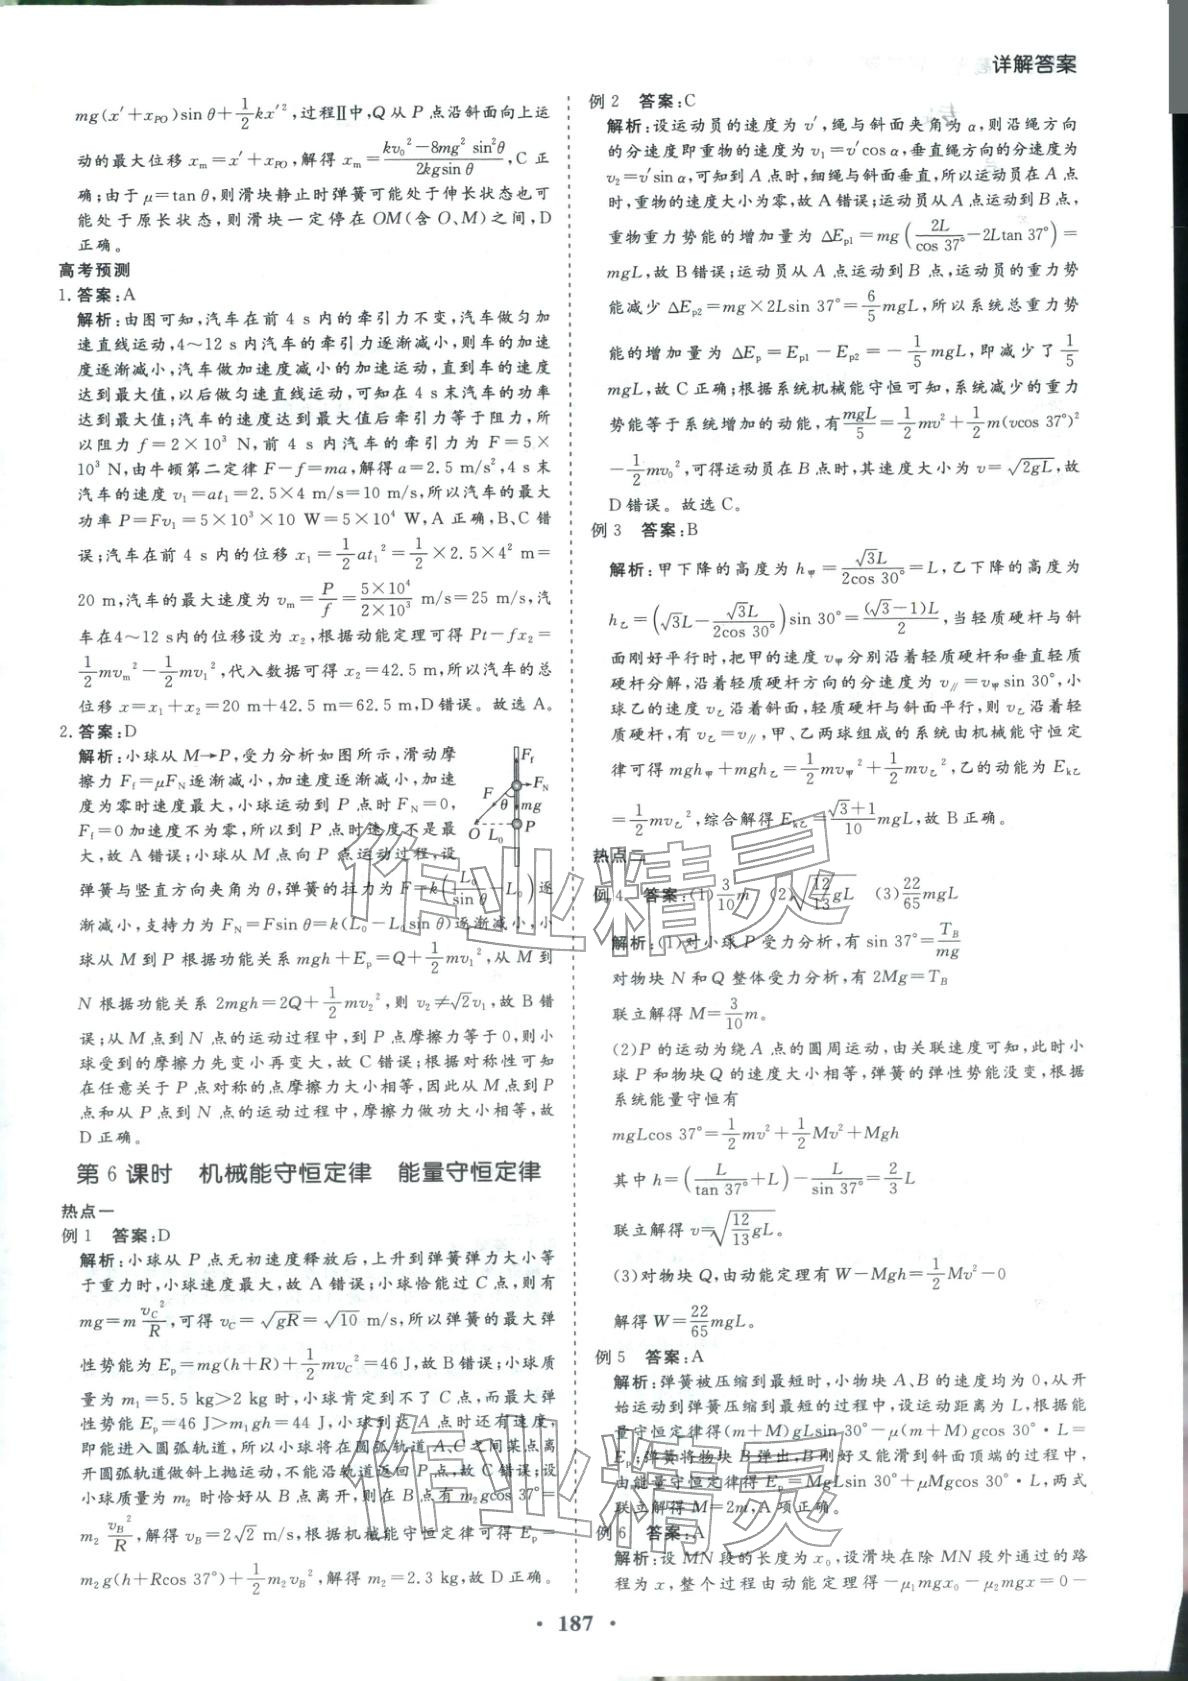 详解答案
mg(x′+x_PO)sin θ+1/2kx′²,过程Ⅱ中,Q从P点沿斜面向上运
动的最大位移x_m=x′+x_PO,解得x_m=(kv₀²-8mg² sin²θ)/(2kgsin θ),C正
确;由于μ=tan θ,则滑块静止时弹簧可能处于伸长状态也可
能处于原长状态,则滑块一定停在OM(含O、M)之间,D
正确。
高考预测
1.答案:A
解析:由图可知,汽车在前4 s内的牵引力不变,汽车做匀加
速直线运动,4～12 s内汽车的牵引力逐渐减小,则车的加速
度逐渐减小,汽车做加速度减小的加速运动,直到车的速度
达到最大值,以后做匀速直线运动,可知在4 s末汽车的功率
达到最大值;汽车的速度达到最大值后牵引力等于阻力,所
以阻力f=2×10³ N,前4 s内汽车的牵引力为F=5×
10³ N,由牛顿第二定律F-f=ma,解得a=2.5 m/s²,4 s末
汽车的速度v₁=at₁=2.5×4 m/s=10 m/s,所以汽车的最大
功率P=Fv₁=5×10³×10 W=5×10⁴ W,A正确,B、C错
误;汽车在前4 s内的位移x₁=1/2at₁²=1/2×2.5×4² m=
20 m,汽车的最大速度为v_m=P/f=(5×10⁴)/(2×10³) m/s=25 m/s,汽
车在4～12 s内的位移设为x₂,根据动能定理可得Pt-fx₂=
1/2mv_m²-1/2mv₁²,代入数据可得x₂=42.5 m,所以汽车的总
位移x=x₁+x₂=20 m+42.5 m=62.5 m,D错误。故选A。
2.答案:D
解析:小球从M→P,受力分析如图所示,滑动摩
擦力F_f=μF_N逐渐减小,加速度逐渐减小,加速
度为零时速度最大,小球运动到P点时F_N=0,
F_f=0加速度不为零,所以到P点时速度不是最
大,故A错误;小球从M点向P点运动过程,设
F_f
F
F_N
θ
mg
O L₀ P
弹簧与竖直方向夹角为θ,弹簧的拉力为F=k(L₀/sin θ-L₀)逐
渐减小,支持力为F_N=Fsin θ=k(L₀-L₀sin θ)逐渐减小,小
球从M到P根据功能关系mgh+E_p=Q+1/2mv₁²,从M到
N根据功能关系2mgh=2Q+1/2mv₂²,则v₂≠√2v₁,故B错
误;从M点到N点的运动过程中,到P点摩擦力等于0,则小
球受到的摩擦力先变小再变大,故C错误;根据对称性可知
在任意关于P点对称的点摩擦力大小相等,因此从M点到P
点和从P点到N点的运动过程中,摩擦力做功大小相等,故
D正确。
第6课时 机械能守恒定律 能量守恒定律
热点一
例1 答案:D
解析:小球从P点无初速度释放后,上升到弹簧弹力大小等
于重力时,小球速度最大,故A错误;小球恰能过C点,则有
mg=m v_C²/R,可得v_C=√gR=√10 m/s,所以弹簧的最大弹
性势能为E_p=mg(h+R)+1/2mv_C²=46 J,故B错误;小球质
量为m₁=5.5 kg>2 kg时,小球肯定到不了C点,而最大弹
性势能E_p=46 J>m₁gh=44 J,小球到达A点时还有速度,
即能进入圆弧轨道,所以小球将在圆弧轨道AC之间某点离
开圆弧轨道做斜上抛运动,不能沿轨道返回P点,故C错误;设
小球质量为m₂时恰好从B点离开,则在B点有m₂gcos 37°=
m₂ v_B²/R,解得v_B=2√2 m/s,根据机械能守恒定律可得E_p=
m₂g(h+Rcos 37°)+1/2m₂v_B²,解得m₂=2.3 kg,故D正确。
例2 答案:C
解析:设运动员的速度为v′,绳与斜面夹角为α,则沿绳方向
的分速度即重物的速度为v₁=v′cos α,垂直绳方向的分速度为
v₂=v′sin α,可知到A点时,细绳与斜面垂直,所以运动员在A点
时,重物的速度大小为零,故A错误;运动员从A点运动到B点,
重物重力势能的增加量为ΔE_p1=mg(2L/cos 37°-2Ltan 37°)=
mgL,故B错误;运动员从A点运动到B点,运动员的重力势
能减少ΔE_p2=mg×2Lsin 37°=6/5mgL,所以系统总重力势
能的增加量为ΔE_p=E_p1-E_p2=-1/5mgL,即减少了1/5
mgL,故C正确;根据系统机械能守恒可知,系统减少的重力
势能等于系统增加的动能,有mgL/5=1/2mv²+1/2m(vcos 37°)²
-1/2mv₀²,可得运动员在B点时,其速度大小为v=√2gL,故
D错误。故选C。
例3 答案:B
解析:甲下降的高度为h_甲=√3L/(2cos 30°)=L,乙下降的高度为
h_乙=(√3L-√3L/(2cos 30°))sin 30°=(√3-1)L/2,当轻质硬杆与斜
面刚好平行时,把甲的速度v_甲分别沿着轻质硬杆和垂直轻质
硬杆分解,沿着轻质硬杆方向的分速度为v_∥=v_甲sin 30°,小
球乙的速度v_乙沿着斜面,轻质硬杆与斜面平行,则v_乙沿着轻
质硬杆,有v_乙=v_∥,甲、乙两球组成的系统由机械能守恒定
律可得mgh_甲+mgh_乙=1/2mv_甲²+1/2mv_乙²,乙的动能为E_k乙
=1/2mv_乙²,综合解得E_k乙=(√3+1)/10 mgL,故B正确。
热点二
例4 答案:(1)3/10m (2)√(12/13 gL) (3)22/65mgL
解析:(1)对小球P受力分析,有sin 37°=T_B/mg
对物块N和Q整体受力分析,有2Mg=T_B
联立解得M=3/10m。
(2)P的运动为绕A点的圆周运动,由关联速度可知,此时小
球P和物块Q的速度大小相等,弹簧的弹性势能没变,根据
系统能量守恒有
mgLcos 37°=1/2mv²+1/2Mv²+Mgh
其中h=(L/tan 37°+L)-L/sin 37°=2/3L
联立解得v=√(12/13 gL)。
(3)对物块Q,由动能定理有W-Mgh=1/2Mv²-0
解得W=22/65mgL。
例5 答案:A
解析:弹簧被压缩到最短时,小物块A、B的速度均为0,从开
始运动到弹簧压缩到最短的过程中,设运动距离为L,根据能
量守恒定律得(m+M)gLsin 30°-μ(m+M)gcos 30°·L=
E_p;弹簧将物块B弹出,B刚好又能滑到斜面顶端的过程中,
由能量守恒定律得E_p=MgLsin 30°+μMgcos 30°·L,两式
联立解得M=2m,A项正确。
例6 答案:A
解析:设MN段的长度为x₀,设滑块在除MN段外通过的路
程为x,整个过程由动能定理得-μ₁mgx₀-μ₂mgx=0-
· 187 ·
作业精灵
作业精灵